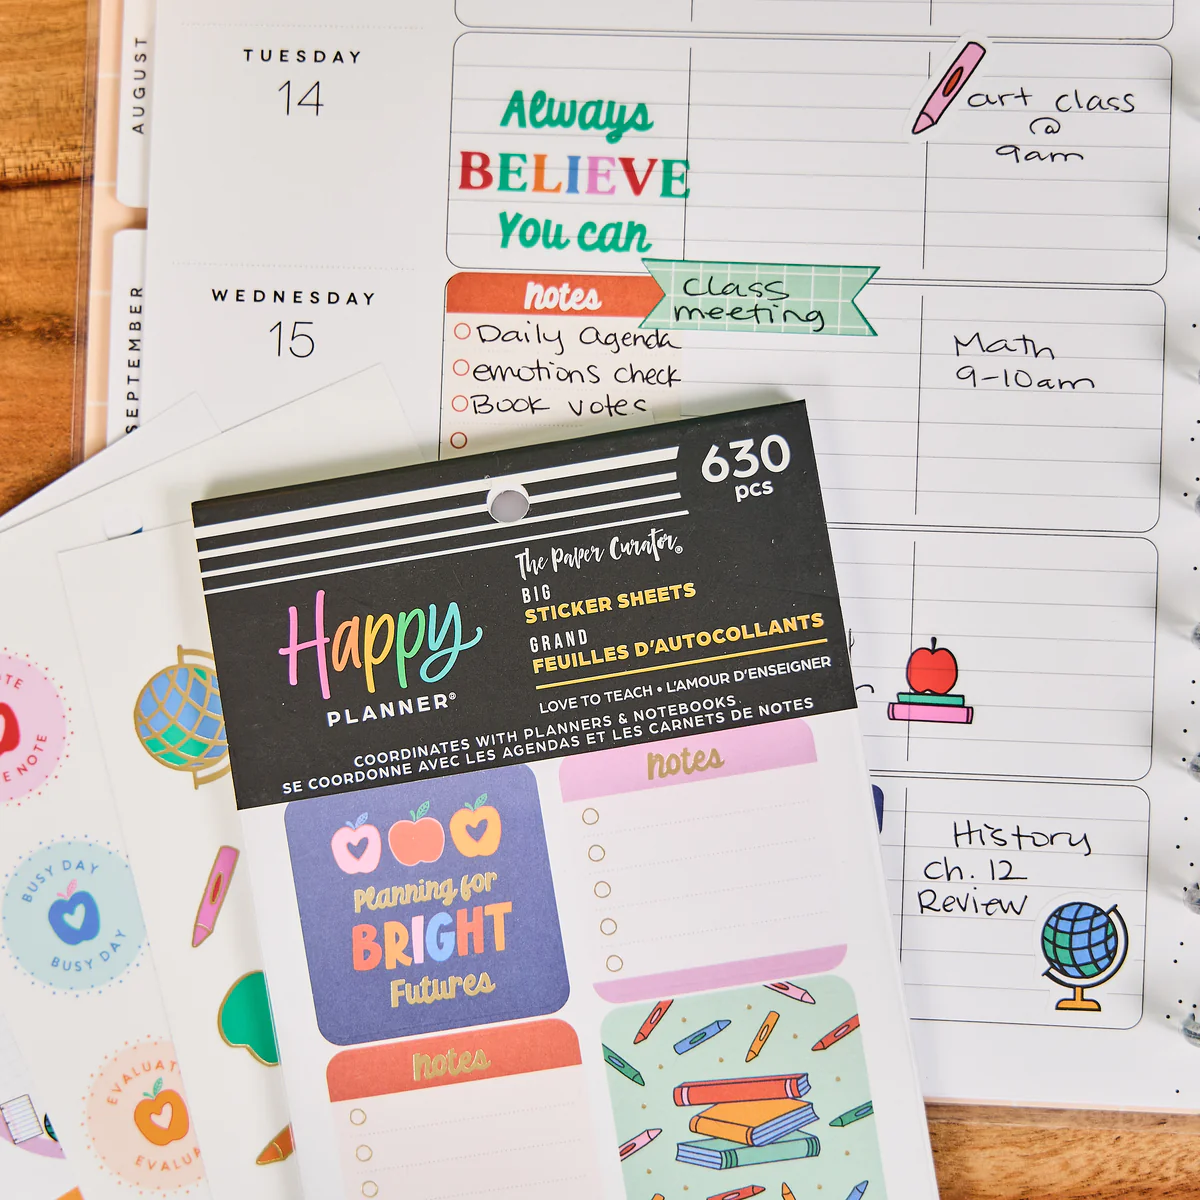 AUGUST
TUESDAY
14
Always
BELIEVE
You can
art class
@
9am
SEPTEMBER
WEDNESDAY
15
notes
Daily Agenda
emotions check
Book votes
class
meeting
Math
9-10am
History
Ch. 12
Review
630
pcs
The Paper Curator®
BIG
STICKER SHEETS
GRAND
FEUILLES D'AUTOCOLLANTS
Happy
PLANNER®
LOVE TO TEACH • L'AMOUR D'ENSEIGNER
COORDINATES WITH PLANNERS & NOTEBOOKS
SE COORDONNE AVEC LES AGENDAS ET LES CARNETS DE NOTES
Planning for
BRIGHT
Futures
notes
notes
NOTE
BUSY DAY
BUSY DAY